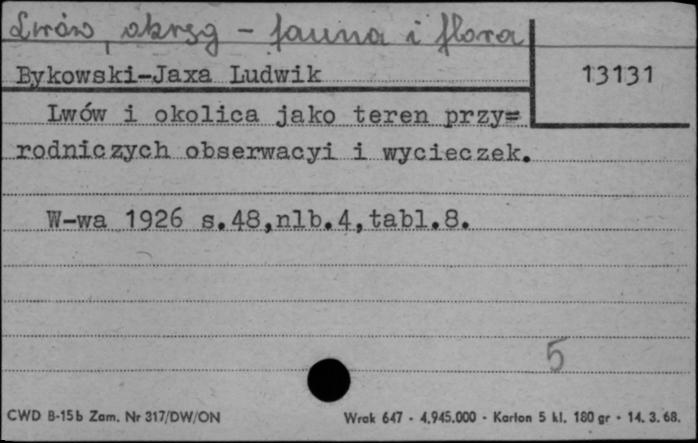 Lwów, okręg - fauna i flora
Bykowski-Jaxa Ludwik
13131
Lwów i okolica jako teren przy=
rodniczych obserwacyi i wycieczek.
W-wa 1926 s.48,nlb.4,tabl.8.
5
CWD B-15b Zam. Nr 317/DW/ON
Wrak 647 - 4.945.000 - Karton 5 kl. 180 gr - 14. 3. 68.